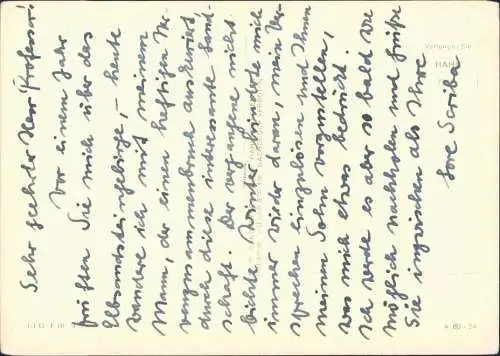 Sehr geehrter Herr Professor!
Vor einem Jahr
prüften Sie mich über das
Elbsandsteingebirge, – heute
wandere ich mit meinem
Mann, der einen heftigen Ner-
venzusammenbruch auskuriert,
durch diese interessante Land-
schaft. Der vergangene nicht-
Winter hinderte mich
immer wieder daran, mein Ver-
sprechen einzulösen und Ihnen
meinen Sohn vorzustellen,
was mich etwas bedrückt.
Ich werde es aber so bald wie
möglich nachholen und grüße
Sie inzwischen als Ihre
Lore Scriba